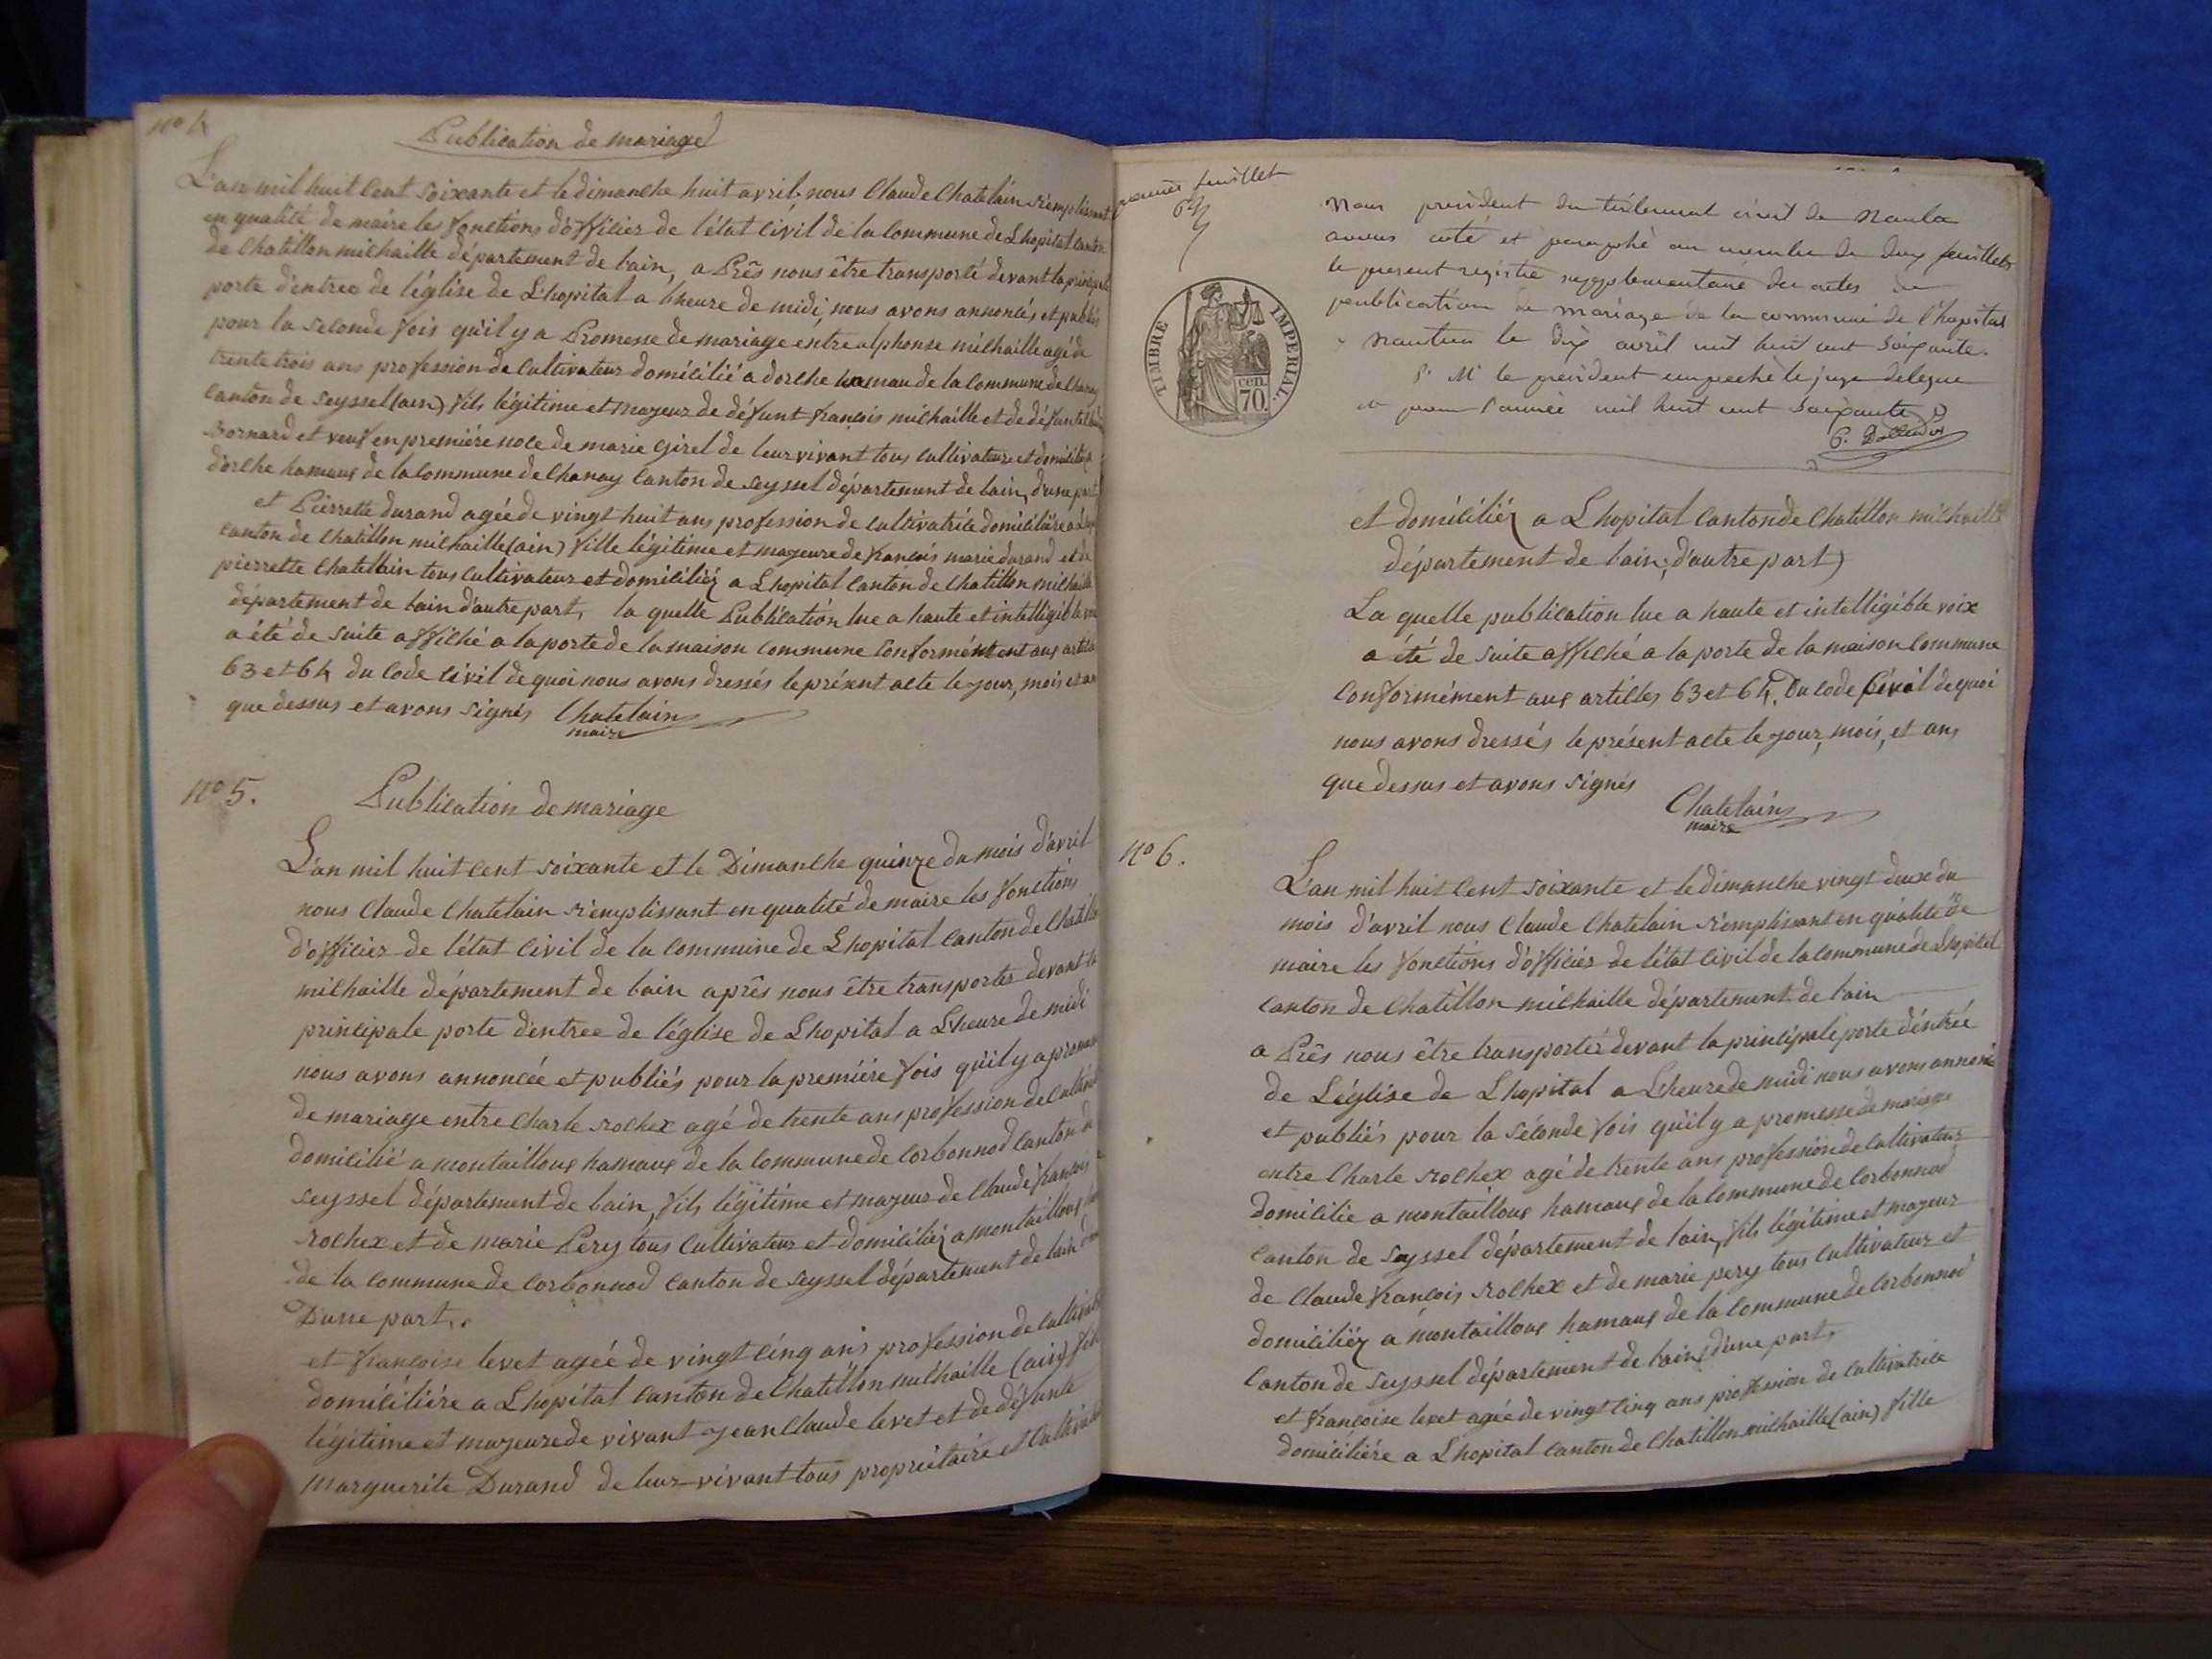 no 4
Publication de mariage
L'an mil huit cent soixante et le dimanche huit avril nous Claude Chatelain remplissant
en qualité de maire les fonctions d'officier de l'état civil de la commune de Lhopital canton
de Chatillon michaille département de lain, a Près nous être transporté devant la principale
porte d'entree de l'église de Lhopital a lheure de midi, nous avons annoncés et publiés
pour la seconde fois qu'il y a Promesse de mariage entre alphonse michaille agé de
trente trois ans profession de Cultivateur domicilié a dorche hamau de la Commune de Chanay
Canton de seyssel (ain) fils légitime et majeur de défunt françois michaille et de défunte
Bornard et veuf en première noce de marie Girel de leur vivant tous cultivateurs et domiciliés a
d'orche hamaux de la Commune de Chanay Canton de seyssel département de lain, d'une part
et Pierrette durand agée de vingt huit ans profession de cultivatrice domicilière a
Canton de Chatillon michaille (ain) fille légitime et majeure de françois marie durand et de
pierrette Chatellain tous cultivateur et domiciliéz a Lhopital Canton de Chatillon michaille
département de lain d'autre part, la quelle Publication lue a haute et intelligible voix
a été de suite affiché a la porte de la maison commune Conformément aux articles
63 et 64 du Code Civil de quoi nous avons dressés le présent acte le jour, mois et an
que dessus et avons signés Chatelain
maire
no 5.
Publication de mariage
L'an mil huit cent soixante et le Dimanche quinze du mois d'avril
nous Claude Chatelain remplissant en qualité de maire les fonctions
d'officier de l'état civil de la Commune de Lhopital Canton de Chatillon
michaille département de lain après nous être transporter devant la
principale porte d'entree de l'église de Lhopital a Lheure de midi
nous avons annoncée et publiés pour la première fois qu'il y a promesse
de mariage entre Charle rochex agé de trente ans profession de Cultivateur
domicilié a montailloux hamaux de la Commune de Corbonnod Canton de
seyssel département de lain, fils légitime et majeur de Claude françois
rochex et de marie Pery tous Cultivateur et domiciliéz a montailloux
de la Commune de Corbonnod Canton de seyssel département de lain
D'une part.
et françoise levet agée de vingt cinq ans profession de Cultivatrice
domicilière a Lhopital Canton de Chatillon michaille (ain) fille
légitime et majeure de vivant jean Claude levet et de défunte
marguerite Durand de leur vivant tous propriétaire et Cultivateur
premier feuillet
TIMBRE IMPERIAL.
cen.
70.
Nous president du tribunal civil de Nantua
avons coté et paraphé au nombre de deux feuillets
le present registre supplementaire des actes de
publication de mariage de la commune de l'hopital
Nantua le dix avril mil huit cent soixante.
P. Mr le president empeché le juge delegue
pour l'année mil huit cent soixante
et domiciliéz a Lhopital Canton de Chatillon michaille
département de lain; d'autre part)
La quelle publication lue a haute et intelligible voix
a été de suite affiché a la porte de la maison Commune
Conformément aux articles 63 et 64. Du Code Civil de quoi
nous avons dressés le présent acte le jour, mois, et ans
que dessus et avons signés
Chatelain
maire
no 6.
L'an mil huit Cent soixante et le dimanche vingt deux du
mois d'avril nous Claude Chatelain remplissant en qualité de
maire les fonctions d'officier de l'état Civil de la Commune de Lhopital
Canton de Chatillon michaille département de lain
a Près nous être transporter devant la principale porte d'éntrée
de L'église de Lhopital a Lheure de midi nous avons annoncé
et publiés pour la séconde fois qu'il y a promesse de mariage
entre Charle rochex agé de trente ans profession de Cultivateur
domicilie a montailloux hamaux de la Commune de Corbonnod
Canton de seyssel département de lain, fils légitime et majeur
de Claude françois rochex et de marie pery tous Cultivateur et
domiciliéz a montailloux hamaux de la Commune de Corbonnod
Canton de seyssel département de lain, d'une part,
et françoise levet agée de vingt cinq ans profession de Cultivatrice
domicilière a Lhopital canton de Chatillon michaille (ain) fille